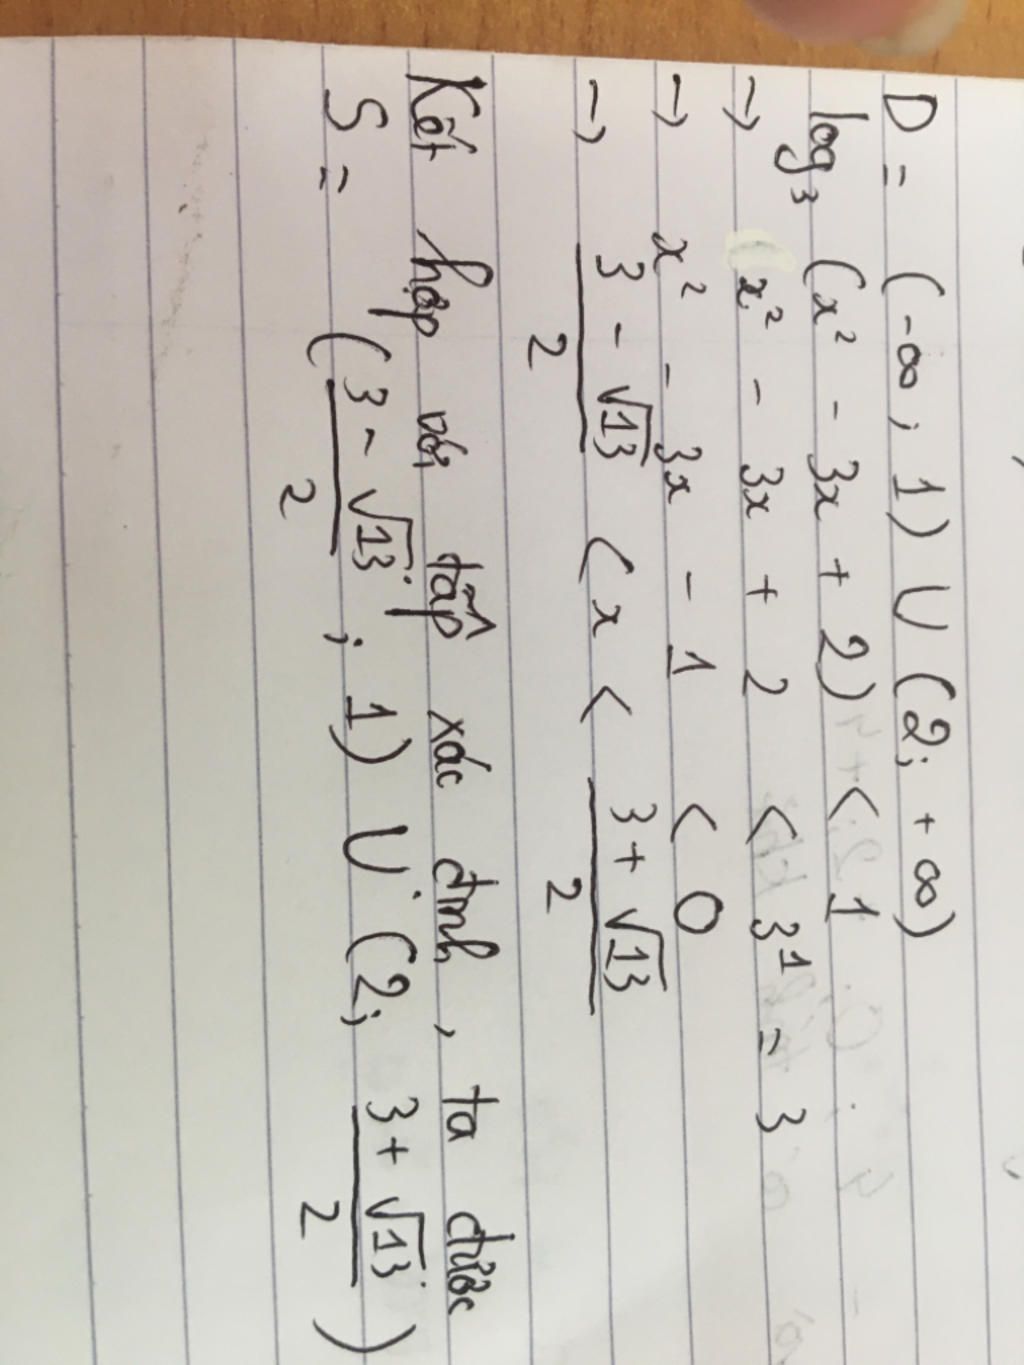 D = (-∞; 1) ∪ (2; +∞)
log₃ (x² - 3x + 2) < 1
→ x² - 3x + 2 < 3¹ = 3
→ x² - 3x - 1 < 0
→ (3 - √13)/2 < x < (3 + √13)/2
Kết hợp với tập xác định, ta được
S = ((3 - √13)/2; 1) ∪ (2; (3 + √13)/2)